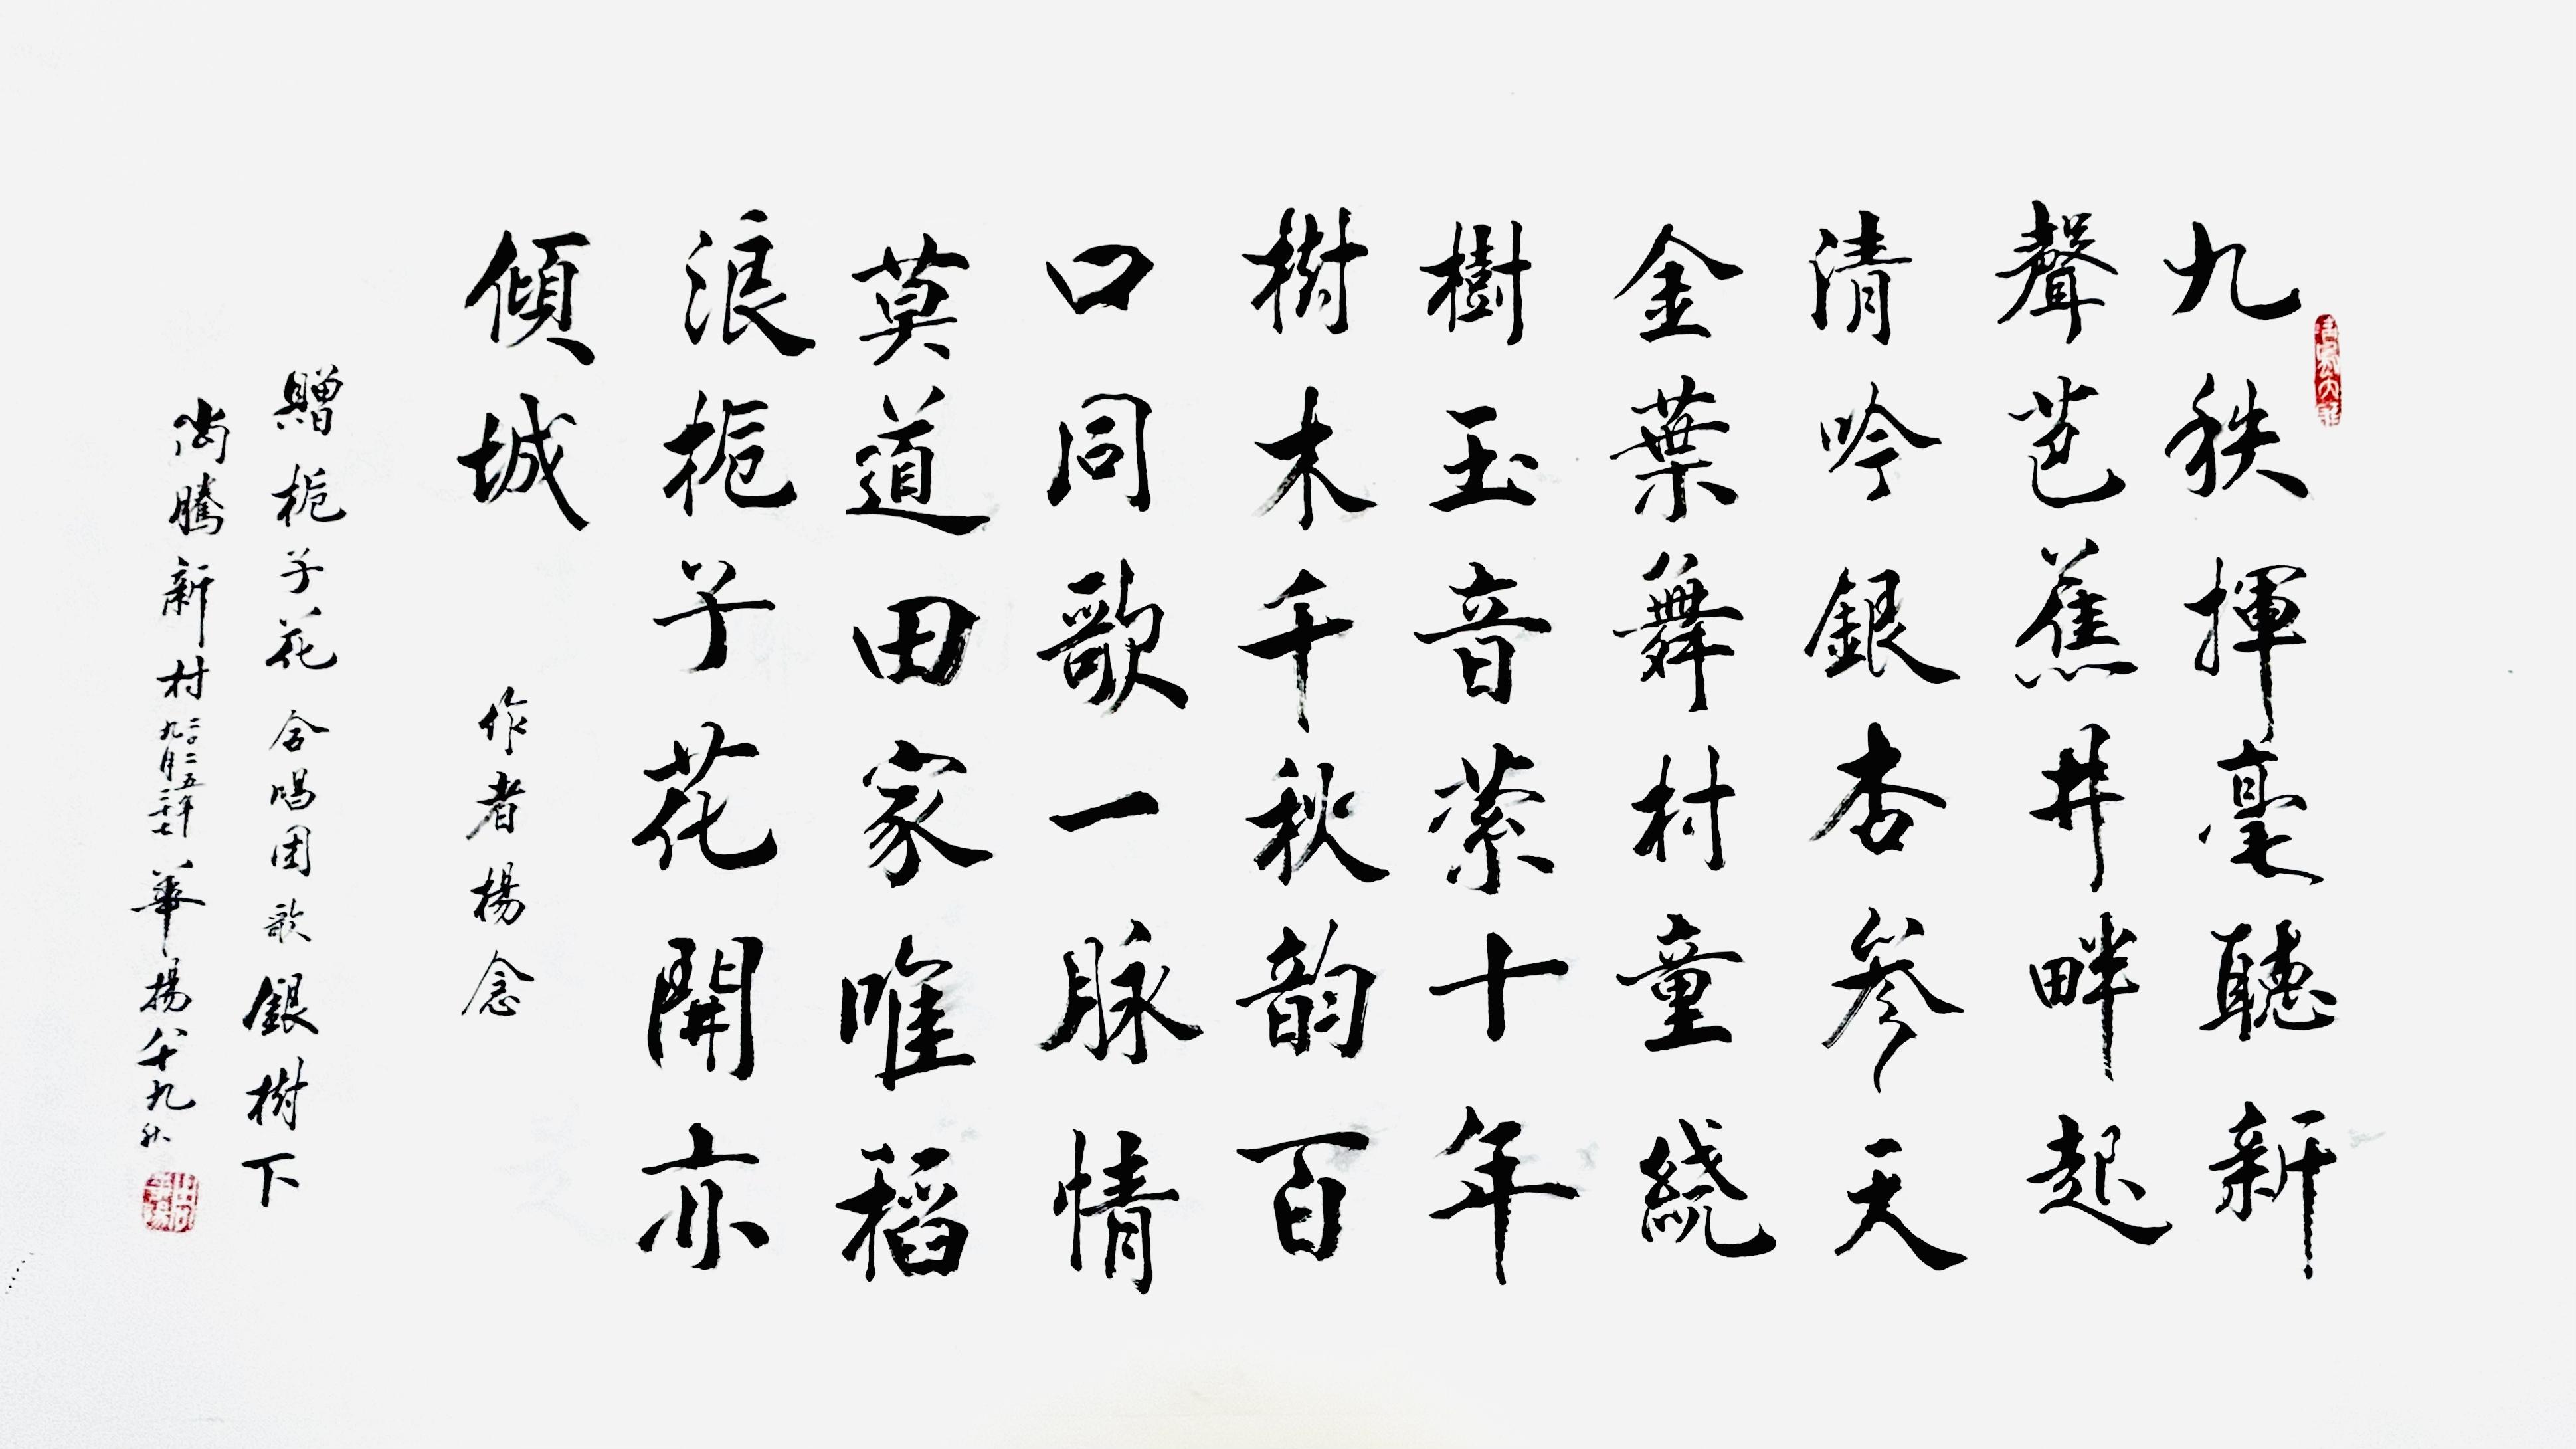 九秩揮毫聽新
聲芭蕉井畔起
清吟銀杏參天
金葉舞村童繞
樹玉音縈十年
樹木千秋韵百
口同歌一脉情
莫道田家唯稻
浪栀子花開亦
傾城
作者楊念
贈栀子花合唱团歌銀樹下
尚騰新村
二〇二五年
九月二十七
華揚八十九秋